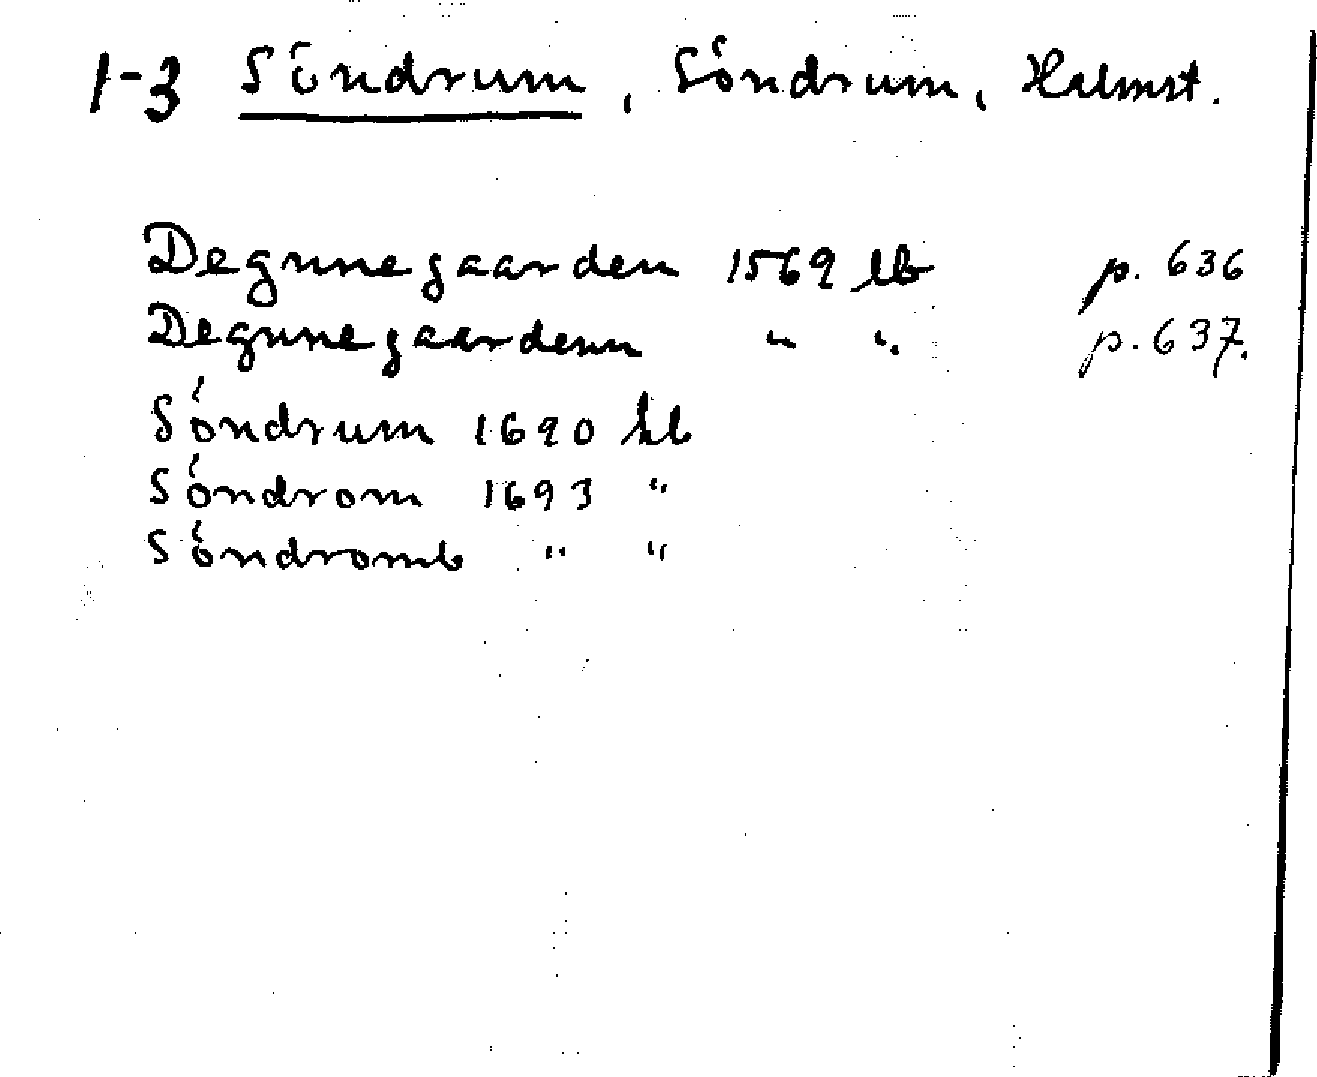 1-3 Söndrum, Söndrum, Halmst.
Degnnegaarden 1569 lb p. 636
Degnnegaardenn " " p. 637.
Söndrum 1690 hb
Söndrom 1693 "
Söndromb " "